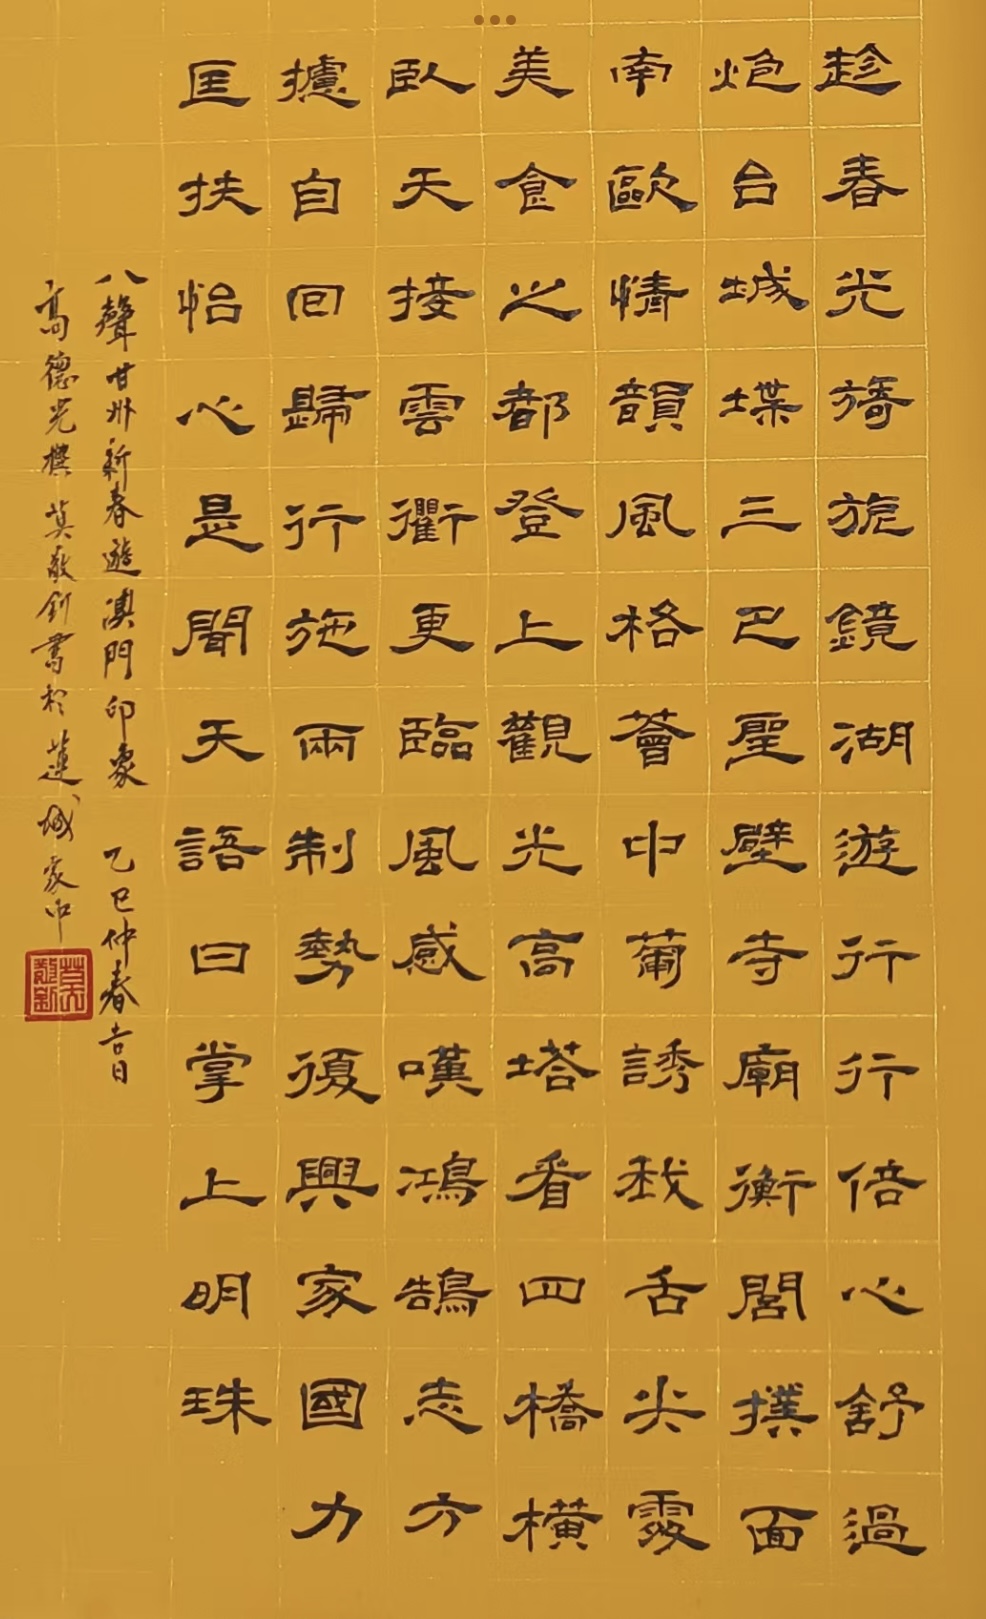 趁春光旖旎鏡湖遊行行倍心舒過
炮台城堞三巴聖壁寺廟衡閣撲面
南歐情韻風格薈中葡誘我舌尖霧
美食之都登上觀光高塔看四橋橫
臥天接雲衢更臨風感嘆鴻鵠志方
攄自回歸行施兩制勢復興家國力
匡扶怡心是聞天語曰掌上明珠
八聲甘州新春遊澳門印象 乙巳仲春吉日
高德光撰 莫敬釗書於蓮城家中